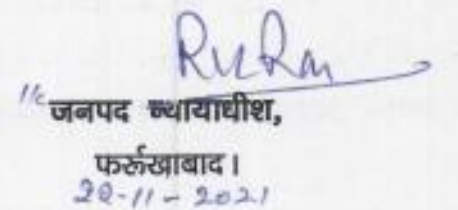 I/c जनपद न्यायाधीश,
फर्रुखाबाद।
22-11-2021